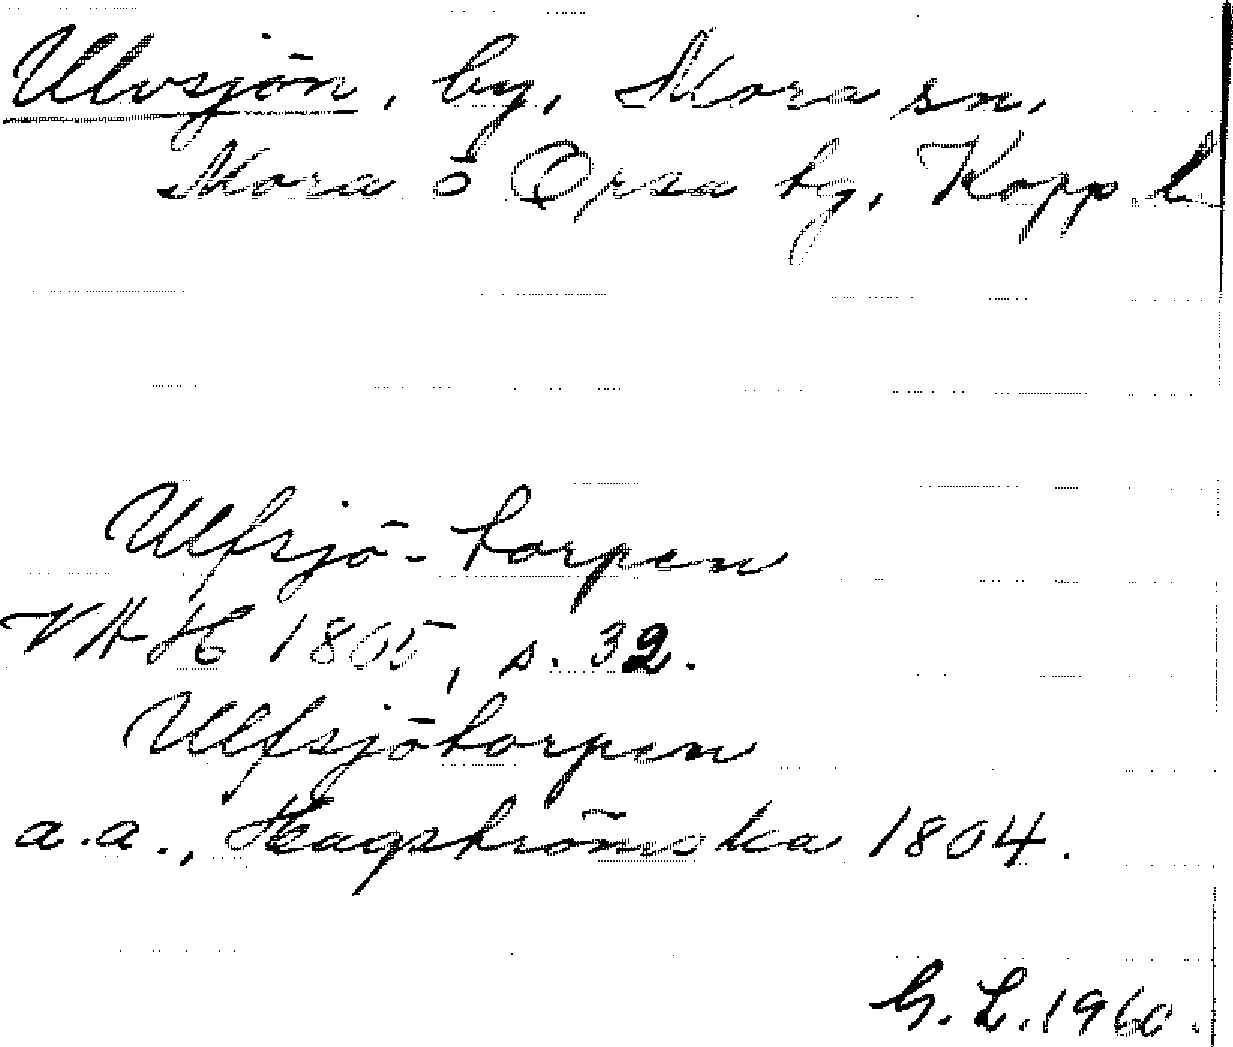 Ulvsjön, by, Mora sn,
Mora o Orsa tg, Kopp l
Ulfsjö-torpen
VAH 1805, s. 32.
Ulfsjötorpen
a.a., Hagströmska 1804.
G. L. 1960.